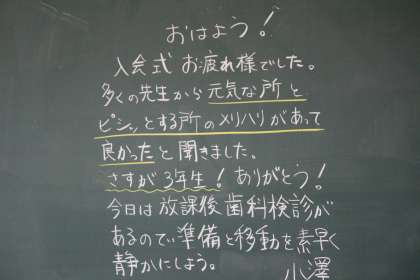 おはよう!
入会式 お疲れ様でした。
多くの先生から元気な所と
ピシッとする所のメリハリがあって
良かったと聞きました。
さすが3年生!ありがとう!
今日は放課後歯科検診が
あるので準備と移動を素早く
静かにしよう。 小澤